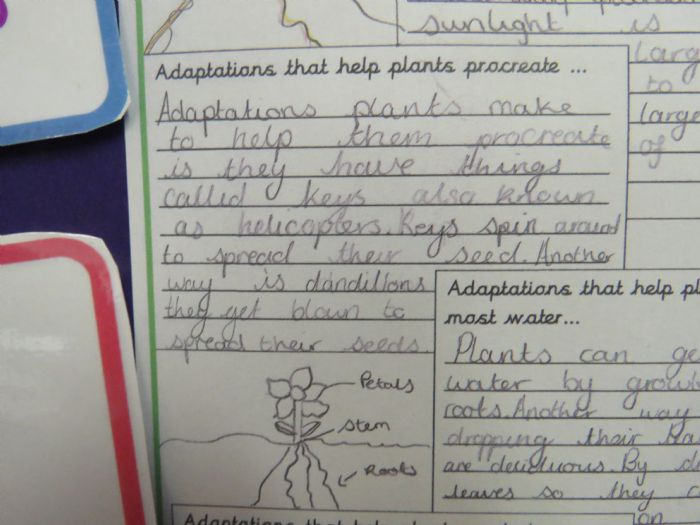 sunlight is
large
to
large
of
Adaptations that help plants procreate ...
Adaptations plants make
to help them procreate
is they have things
called keys also known
as helicopters. Keys spin around
to spread their seed. Another
way is dandillons
they get blown to
spread their seeds.
Petals
stem
Roots
Adaptations that help pl
most water...
Plants can ge
water by grow
roots. Another way
dropping their
are deciduous. By
leaves so they c
Adaptations that
on